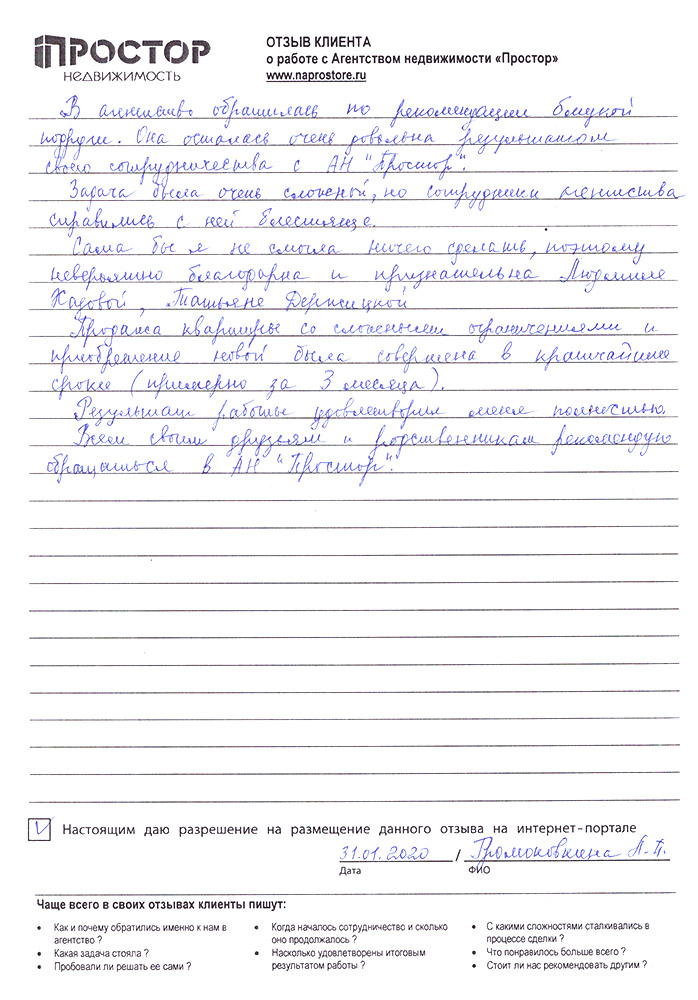 ПРОСТОР
НЕДВИЖИМОСТЬ
ОТЗЫВ КЛИЕНТА
о работе с Агентством недвижимости «Простор»
www.naprostore.ru
В агентство обратилась по рекомендации близкой
подруги. Она осталась очень довольна результатом
своего сотрудничества с АН "Простор".
Задача была очень сложной, но сотрудники агентства
справились с ней блестяще.
Сама бы я не смогла ничего сделать, поэтому
невероятно благодарна и признательна Людмиле
Кадовой, Татьяне Держицкой
Продажа квартиры со сложными ограничениями и
приобретение новой была совершена в кратчайшие
сроки (примерно за 3 месяца).
Результат работы удовлетворил меня полностью.
Всем своим друзьям и родственникам рекомендую
обращаться в АН "Простор".
Настоящим даю разрешение на размещение данного отзыва на интернет-портале
31.01.2020 / Громоковкина А.П.
Дата ФИО
Чаще всего в своих отзывах клиенты пишут:
• Как и почему обратились именно к нам в агентство ?
• Какая задача стояла ?
• Пробовали ли решать ее сами ?
• Когда началось сотрудничество и сколько оно продолжалось ?
• Насколько удовлетворены итоговым результатом работы ?
• С какими сложностями сталкивались в процессе сделки ?
• Что понравилось больше всего ?
• Стоит ли нас рекомендовать другим ?